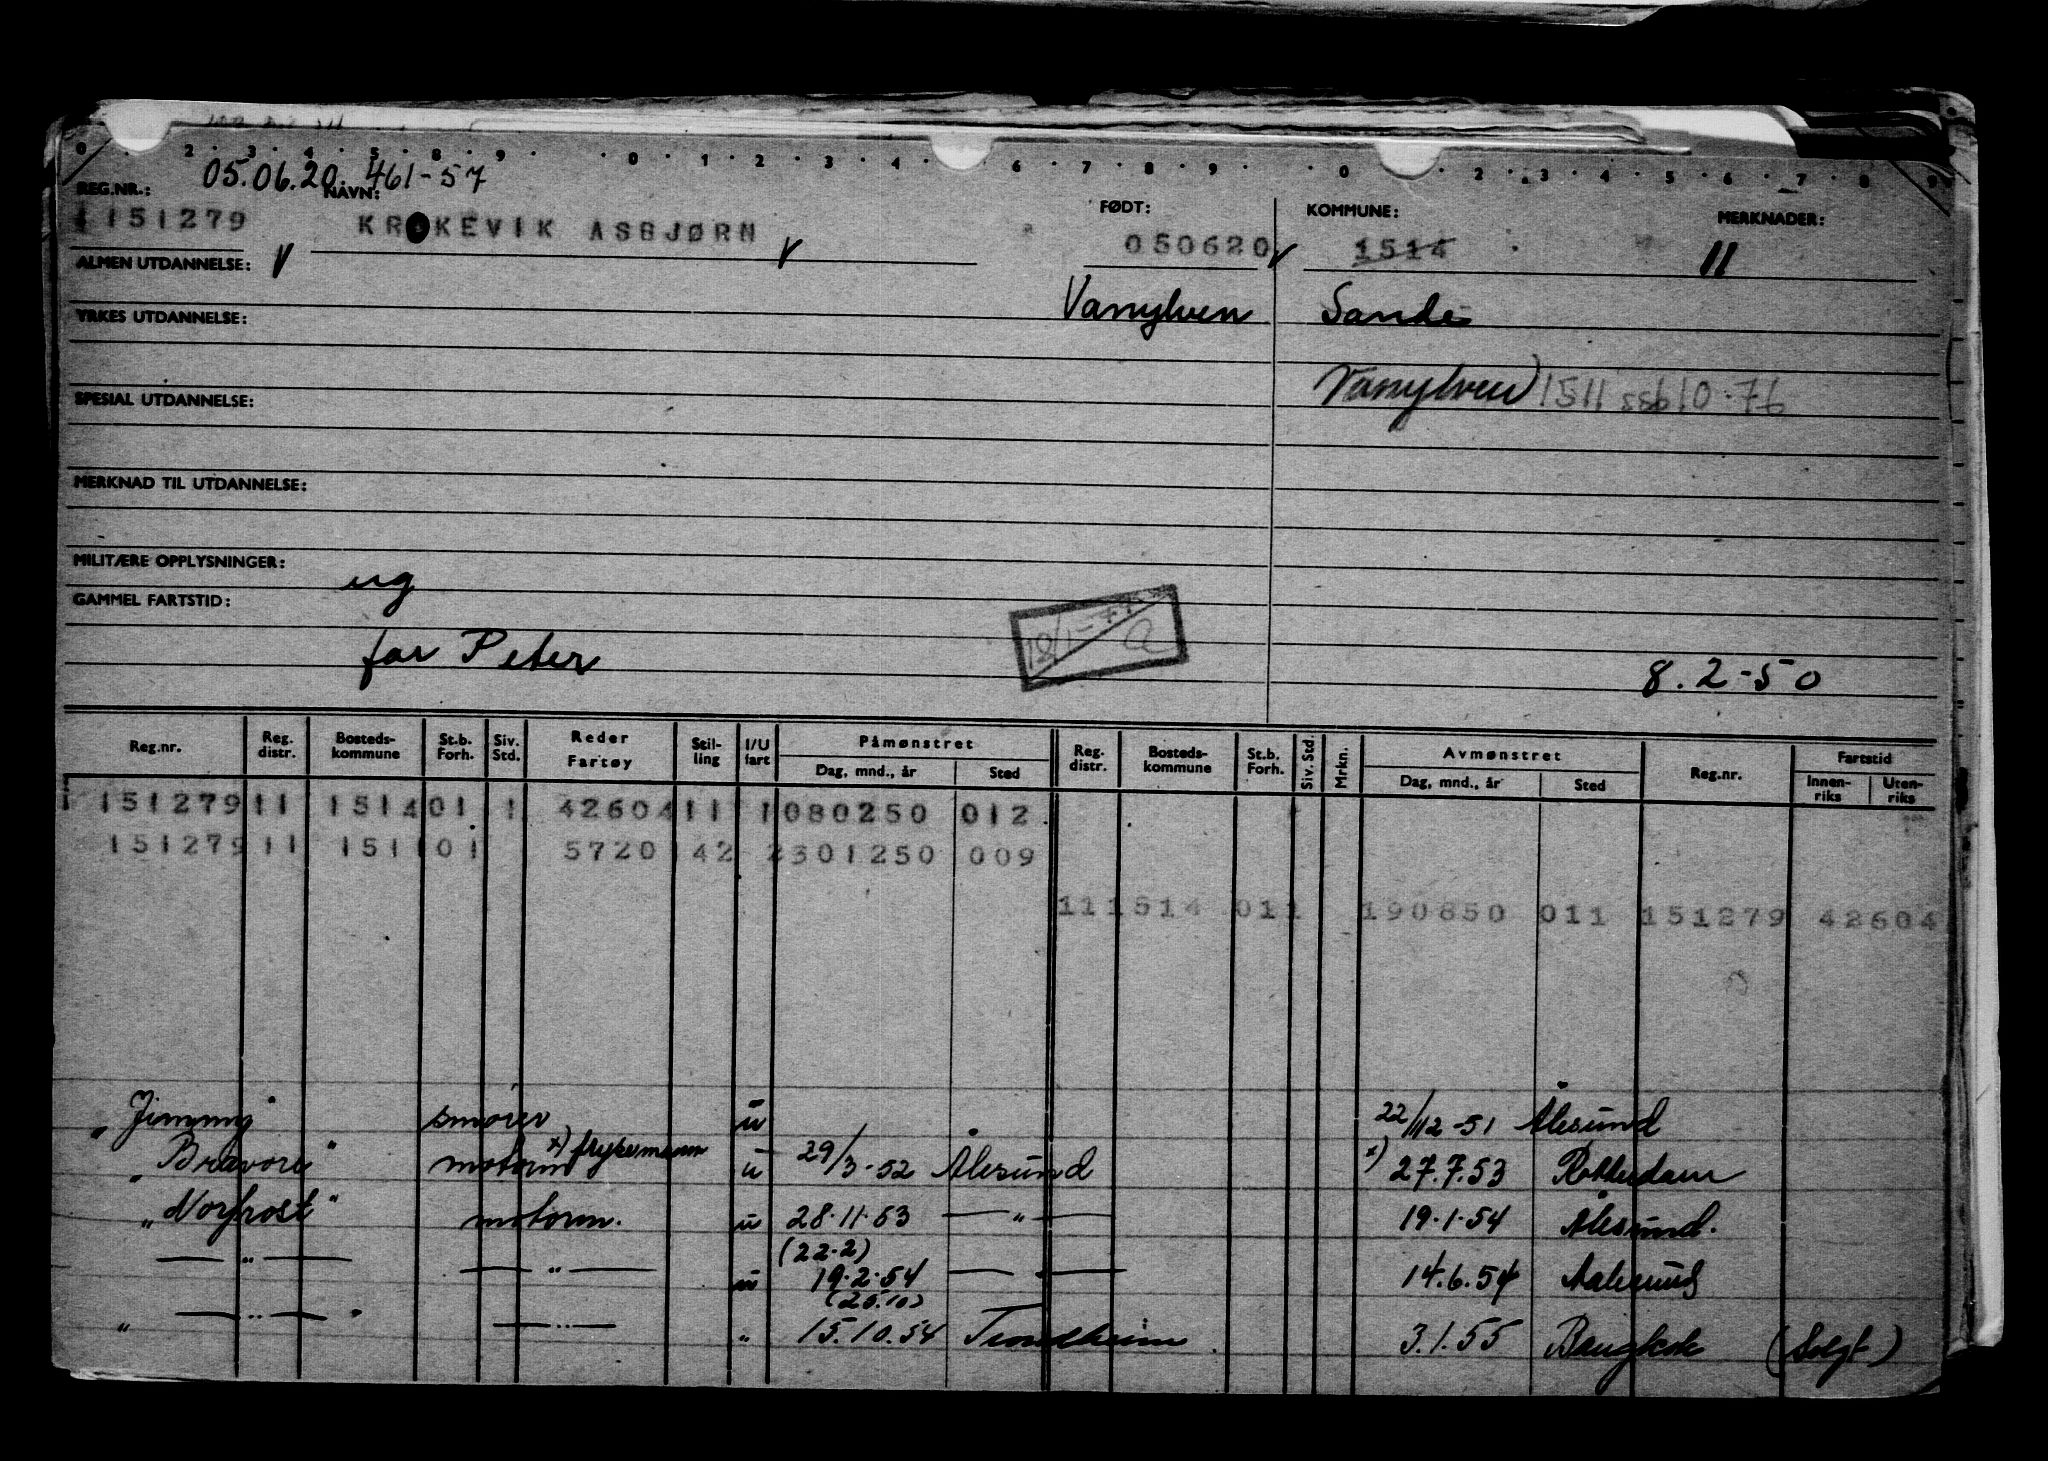 05.06.20. 461-57
REG.NR.: NAVN: FØDT: KOMMUNE: MERKNADER:
1151279 KROKEVIK ASBJØRN 050620 1514 11
ALMEN UTDANNELSE:
Vanylven Sande
YRKES UTDANNELSE:
Vanylven 1511
SPESIAL UTDANNELSE:
MERKNAD TIL UTDANNELSE:
MILITÆRE OPPLYSNINGER:
ug
GAMMEL FARTSTID:
far Peter
8.2-50
Reg.nr. Reg. distr. Bosteds-kommune St.b. Forh. Siv. Std. Reder Fartøy Stil-ling I/U fart Påmønstret Dag, mnd., år Sted Reg. distr. Bosteds-kommune St.b. Forh. Siv. Std. Mrkn. Avmønstret Dag, mnd., år Sted Reg.nr. Fartstid Innen-riks Uten-riks
1 151279 11 1514 01 1 42604 11 1 080250 012
151279 11 151 101 5720 142 2301250 009
111514 011 190850 011 151279 42604
"Jimmy" smører u 22/12-51 Ålesund
"Bravore" motorm x) frykermann u 29/3-52 Ålesund x) 27.7.53 Rotterdam
"Norfrost" motorm. u 28.11.53 —"— 19.1.54 Ålesund.
—"— —"— u (22.2) 19.2.54 —"— 14.6.54 Aalesund
" —"— " —"— " (25.10) 15.10.54 Trondheim 3.1.55 Bangkok (Solgt)